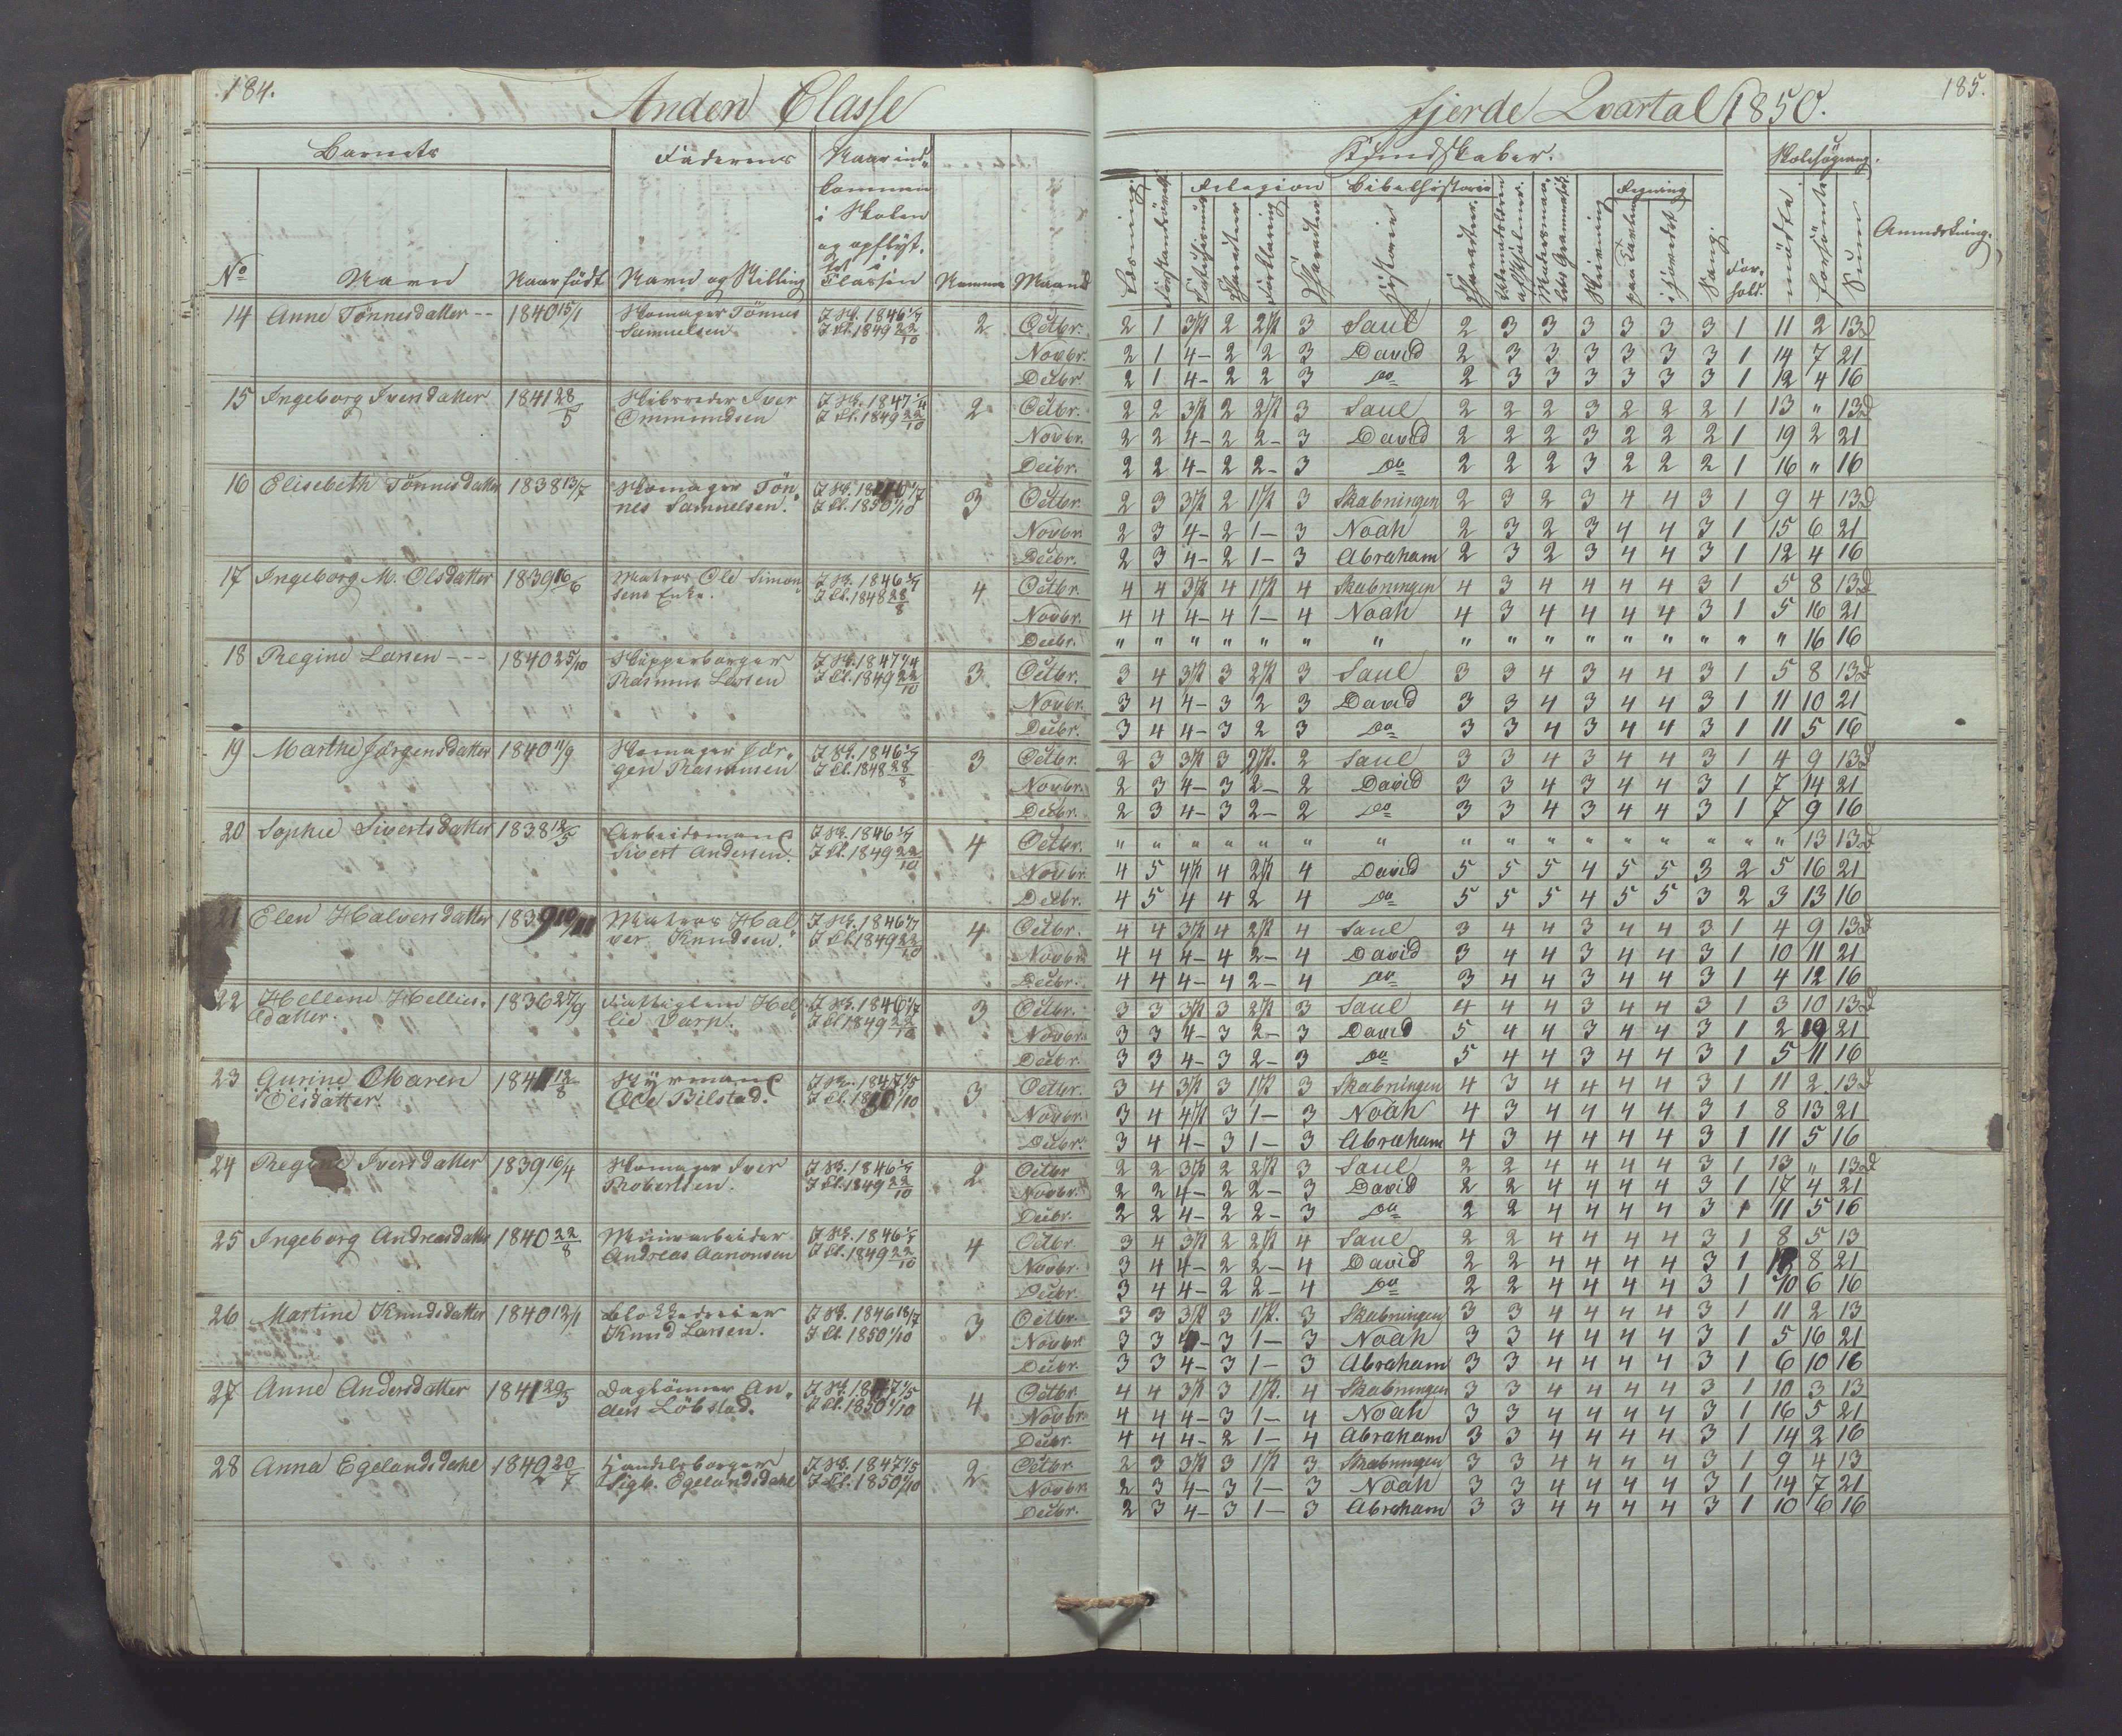 184.
Anden Classe
Barnets
Faderens
Naar ind-
kommen
i Skolen
og opflyt-
tet i
Classen
No
Navn
Naar födt
Navn og Stilling
Maaned
14 Anne Tönnesdatter -- 1840 15/1 Skomager Tönnes J Sk. 1846 2 Octbr.
Samuelsen J Cl. 1849 22/10
Novbr.
Decbr.
15 Ingeborg Iversdatter 1841 28/5 Skibsreder Iver J Sk. 1847 2 Octbr.
Ommundsen J Cl. 1849 22/10
Novbr.
Decbr.
16 Elisebeth Tönnesdatter 1838 13/7 Skomager Tön- 3 Octbr.
nes Samuelsen. J Cl. 1850 1/10
Novbr.
Decbr.
17 Ingeborg M. Olsdatter 1839 16/6 Matros Ole Simon- J Sk. 1846 4 Octbr.
sens Enke. J Cl. 1848 28/8
Novbr.
Decbr.
18 Regine Larsen --- 1840 25/10 Skipperborger J Sk. 1847 3 Octbr.
Rasmus Larsen J Cl. 1849 22/10
Novbr.
Decbr.
19 Marthe Jörgensdatter 1840 11/9 Skomager Jör- J Sk. 1846 3 Octbr.
gen Rasmusen J Cl. 1848 28/8
Novbr.
Decbr.
20 Sophie Sivertsdatter 1838 12/5 Arbeidsmand J Sk. 1846 4 Octbr.
Sivert Andersen. J Cl. 1849 22/10
Novbr.
Decbr.
21 Elen Halversdatter 1839 10/11 Matros Hal- J Sk. 1846 4 Octbr.
ver Knudsen. J Cl. 1849 22/10
Novbr.
Decbr.
22 Hellene Hellies- 1836 27/9 Fattiglem Hel- J Sk. 1846 3 Octbr.
datter. lie Varp. J Cl. 1849 22/10
Novbr.
Decbr.
23 Gurine Maren 1841 12/8 Styrmand J Sk. 1847 1/5 3 Octbr.
Olsdatter. Ole Bilstad. J Cl. 1850 1/10
Novbr.
Decbr.
24 Regine Iversdatter 1839 16/4 Skomager Iver J Sk. 1846 2 Octbr
Robertsen. J Cl. 1849 22/10
Novbr.
Decbr.
25 Ingeborg Andreasdatter 1840 22/8 Minearbeider J Sk. 1846 4 Octbr
Andreas Aanonsen J Cl. 1849 22/10
Novbr.
Decbr.
26 Martine Knudsdatter 1840 12/1 Blokkedreier J Sk. 1846 18/7 3 Octbr.
Knud Larsen. J Cl. 1850 1/10
Novbr.
Decbr.
27 Anne Andersdatter 1841 29/3 Daglönner An- J Sk. 1847 1/5 4 Octbr.
ders Löbstad. J Cl. 1850 1/10
Novbr.
Decbr.
28 Anna Egelandsdahl 1840 20/7 Handelsborger J Sk. 1847 1/5 2 Octbr
Sigb. Egelandsdahl J Cl. 1850 1/10
Novbr.
Decbr.
185.
Fjerde Qvartal 1850.
Kundskaber.
Skolesögning.
Religion Bibelhistorie Regning
Læsning. Forklaring Historie Skrivning paa Tavlen i Hovedet Sang. For- hold. mödte forsömte Sum Anmærkning.
2 1 3 1/2 2 2 1/2 3 Saul 2 3 3 3 3 3 3 1 11 2 13
2 1 4- 2 2 3 David 2 3 3 3 3 3 3 1 14 7 21
2 1 4- 2 2 3 Do 2 3 3 3 3 3 3 1 12 4 16
2 2 3 1/2 2 2 1/2 3 Saul 2 2 2 3 2 2 2 1 13 " 13
2 2 4- 2 2- 3 David 2 2 2 3 2 2 2 1 19 2 21
2 2 4- 2 2- 3 Do 2 2 2 3 2 2 2 1 16 " 16
2 3 3 1/2 2 1 1/2 3 Skabningen 2 3 2 3 4 4 3 1 9 4 13
2 3 4- 2 1- 3 Noah 2 3 2 3 4 4 3 1 15 6 21
2 3 4- 2 1- 3 Abraham 2 3 2 3 4 4 3 1 12 4 16
4 4 3 1/2 4 1 1/2 4 Skabningen 4 3 4 4 4 4 3 1 5 8 13
4 4 4- 4 1- 4 Noah 4 3 4 4 4 4 3 1 5 16 21
" " " " " " " " " " " " " " " " 16 16
3 4 3 1/2 3 2 1/2 3 Saul 3 3 4 3 4 4 3 1 5 8 13
3 4 4- 3 2 3 David 3 3 4 3 4 4 3 1 11 10 21
3 4 4- 3 2 3 Do 3 3 4 3 4 4 3 1 11 5 16
2 3 3 1/2 3 2 1/2. 2 Saul 3 3 4 3 4 4 3 1 4 9 13
2 3 4- 3 2- 2 David 3 3 4 3 4 4 3 1 7 14 21
2 3 4- 3 2- 2 Do 3 3 4 3 4 4 3 1 7 9 16
" " " " " " " " " " " " " " " " 13 13
4 5 4 1/2 4 2 1/2 4 David 5 5 5 4 5 5 3 2 5 16 21
4 5 4 4 2 4 Do 5 5 5 4 5 5 3 2 3 13 16
4 4 3 1/2 4 2 1/2 4 Saul 3 4 4 3 4 4 3 1 4 9 13
4 4 4- 4 2- 4 David 3 4 4 3 4 4 3 1 10 11 21
4 4 4- 4 2- 4 Do 3 4 4 3 4 4 3 1 4 12 16
3 3 3 1/2 3 2 1/2 3 Saul 4 4 4 3 4 4 3 1 3 10 13
3 3 4- 3 2- 3 David 5 4 4 3 4 4 3 1 2 19 21
3 3 4- 3 2- 3 Do 5 4 4 3 4 4 3 1 5 11 16
3 4 3 1/2 3 1 1/2 3 Skabningen 4 3 4 4 4 4 3 1 11 2 13
3 4 4 1/2 3 1- 3 Noah 4 3 4 4 4 4 3 1 8 13 21
3 4 4- 3 1- 3 Abraham 4 3 4 4 4 4 3 1 11 5 16
2 2 3 1/2 2 2 1/2 3 Saul 2 2 4 4 4 4 3 1 13 " 13
2 2 4- 2 2- 3 David 2 2 4 4 4 4 3 1 17 4 21
2 2 4- 2 2- 3 Do 2 2 4 4 4 4 3 1 11 5 16
3 4 3 1/2 2 2 1/2 4 Saul 2 2 4 4 4 4 3 1 8 5 13
3 4 4- 2 2- 4 David 2 2 4 4 4 4 3 1 13 8 21
3 4 4- 2 2- 4 Do 2 2 4 4 4 4 3 1 10 6 16
3 3 3 1/2 3 1 1/2. 3 Skabningen 3 3 4 4 4 4 3 1 11 2 13
3 3 4- 3 1- 3 Noah 3 3 4 4 4 4 3 1 5 16 21
3 3 4- 3 1- 3 Abraham 3 3 4 4 4 4 3 1 6 10 16
4 4 3 1/2 3 1 1/2. 4 Skabningen 3 3 4 4 4 4 3 1 10 3 13
4 4 4- 3 1- 4 Noah 3 3 4 4 4 4 3 1 16 5 21
4 4 4- 2 1- 4 Abraham 3 3 4 4 4 4 3 1 14 2 16
2 3 3 1/2 3 1 1/2 3 Skabningen 3 3 4 4 4 4 3 1 9 4 13
2 3 4- 3 1- 3 Noah 3 3 4 4 4 4 3 1 14 7 21
2 3 4- 3 1- 3 Abraham 3 3 4 4 4 4 3 1 10 6 16